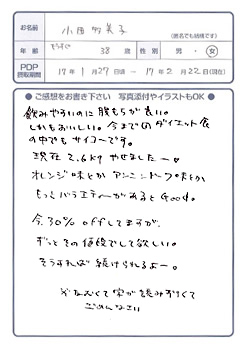 お名前 小田 多美子
(匿名でも結構です)
年齢 もうすぐ 38 歳 性別 男・女
PDP
摂取期間 17年1月27日頃 ～ 17年2月22日(現在)
●ご感想をお書き下さい 写真添付やイラストもOK●
飲みやすいのに腹もちが良い。
しかもおいしい。今までのダイエット食
の中でもサイコーです。
現在 2.6kg やせましたー♡
オレンジ味とか アンニンドーフ味とか
もっとバラエティーがあるとGood。
今、30% offしてますが、
ずっとその値段でして欲しい。
そうすれば続けられるよー。
※ねむくて字が読みずらくて
ごめんなさい